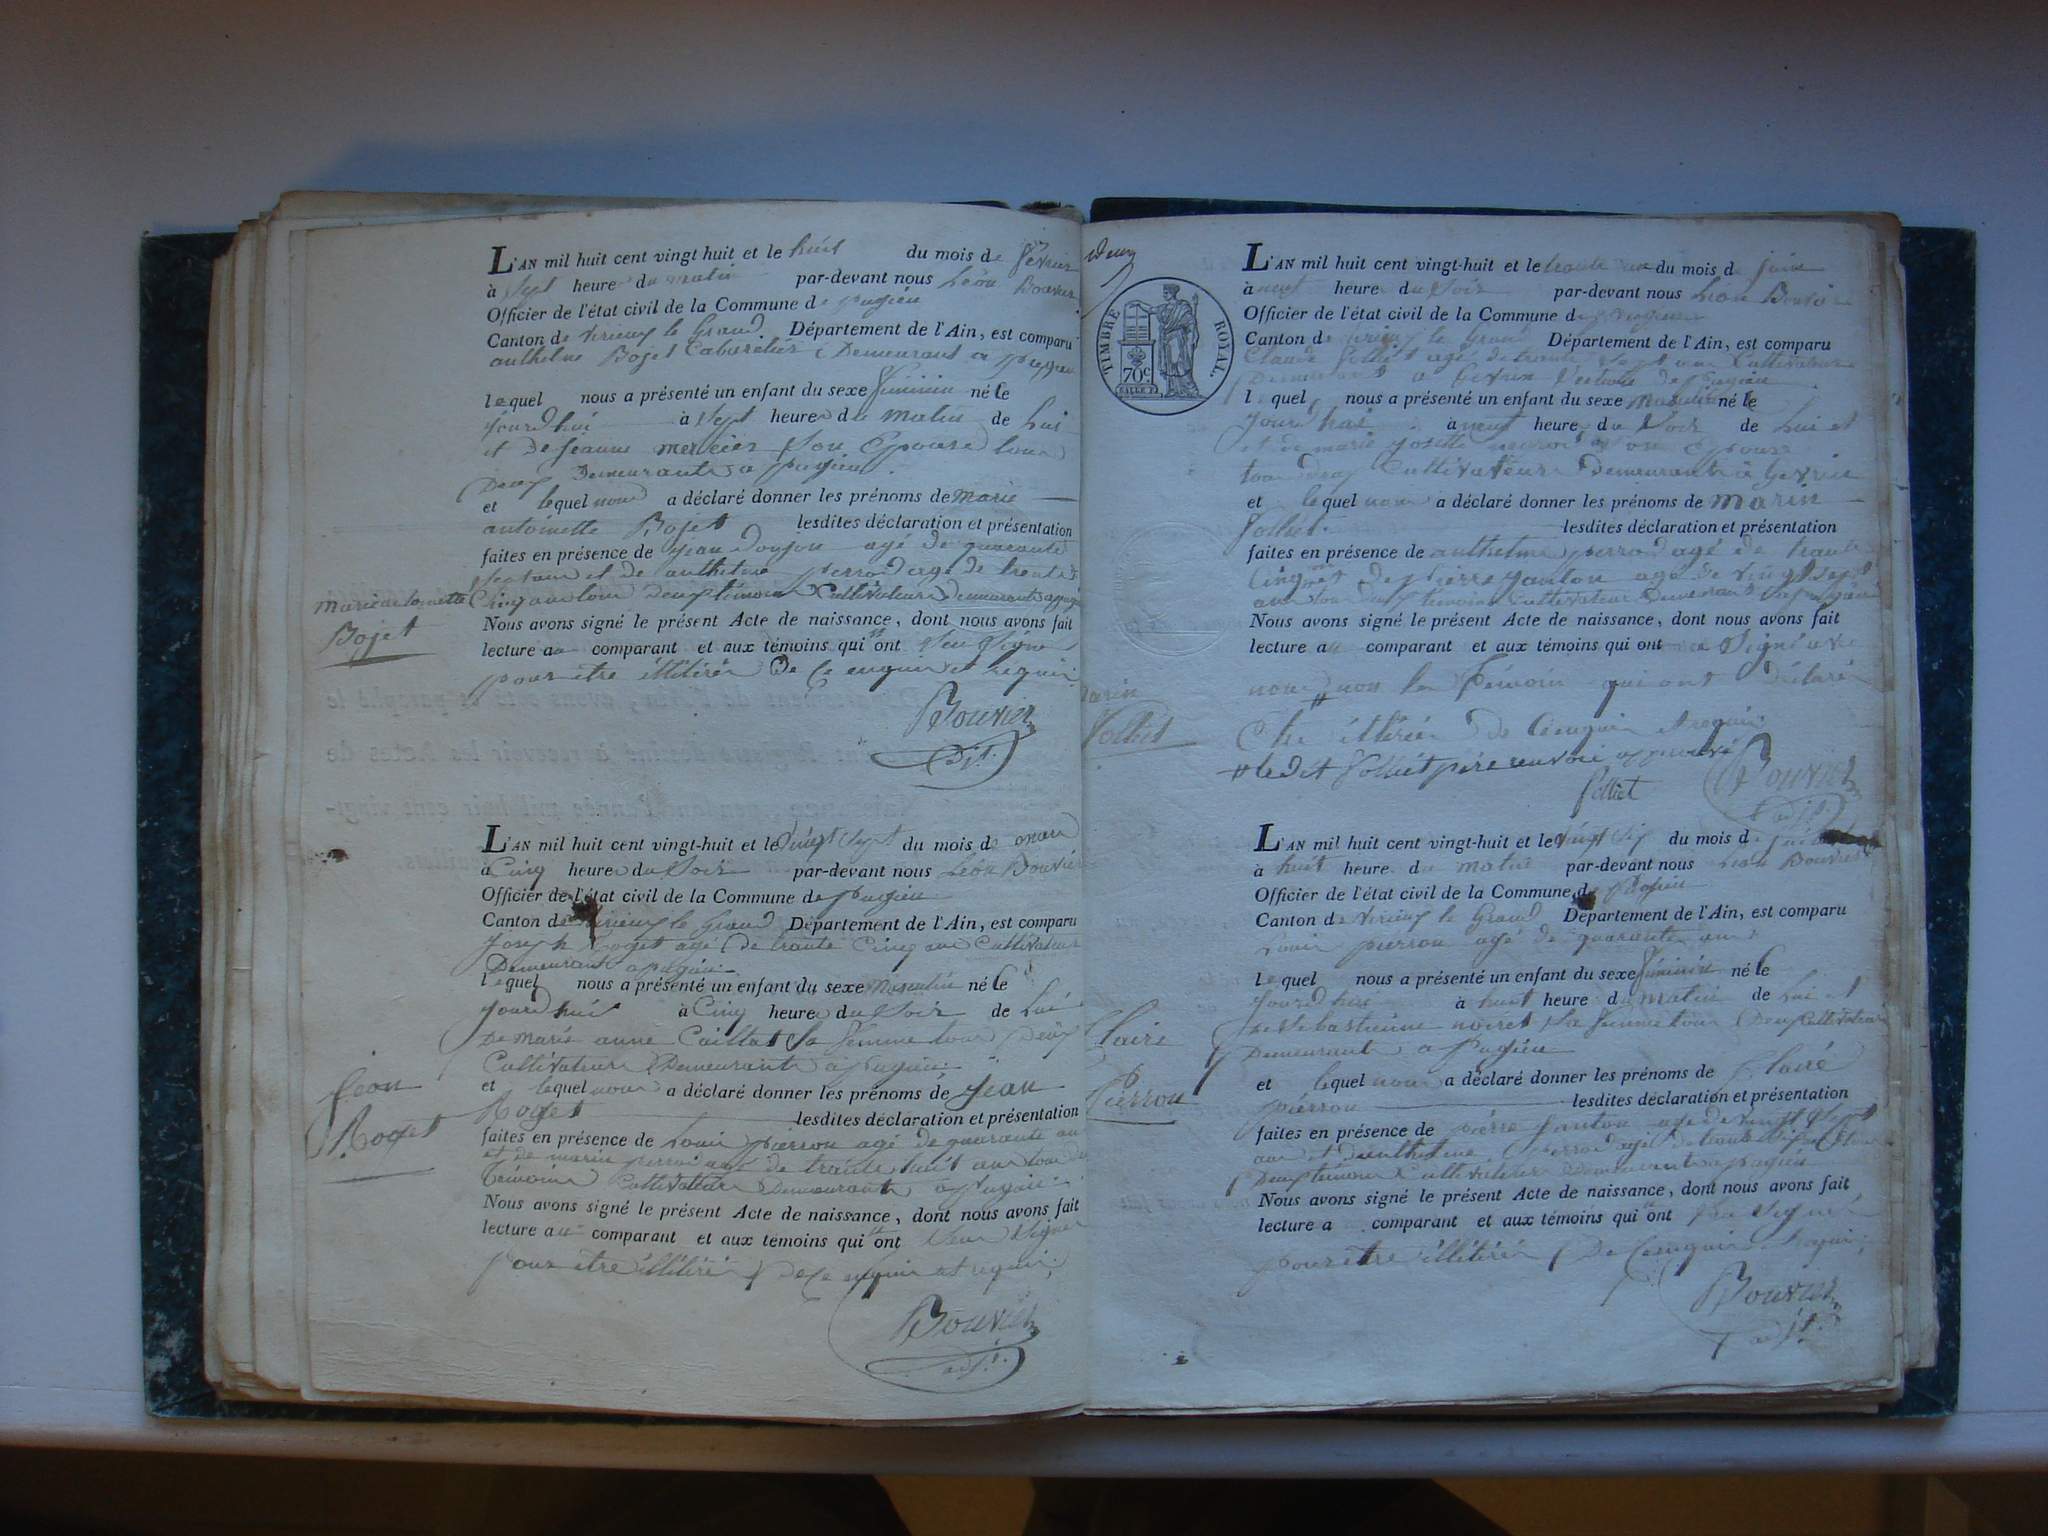 L'AN mil huit cent vingt huit et le huit du mois de février
à Sept heure du matin par-devant nous Léon Bouvier
Officier de l'état civil de la Commune de pugieu
Canton de virieux le Grand Département de l'Ain, est comparu
anthelme Bojet Cabaretier Demeurant a pugieu
lequel nous a présenté un enfant du sexe féminin né le
jourdhui à Sept heure du matin de Lui
et De jeanne mercier Son Epouse tous
Deux Demeurants a pugieu
et lequel nous a déclaré donner les prénoms de marie
antoinette Bojet lesdites déclaration et présentation
faites en présence de jean agé de quarante
et de anthelme perrod agé de trente
Cinq ans tous Deux témoins Cultivateurs Demeurants a pugieu
marie antoinette
Bojet
Nous avons signé le présent Acte de naissance, dont nous avons fait
lecture au comparant et aux témoins qui ont Signé
pour etre illitérés De Ce enquis et requis
Bouvier
adjt.
L'AN mil huit cent vingt-huit et le vingt Sept du mois de mars
à Cinq heure du Soir par-devant nous Léon Bouvier
Officier de l'état civil de la Commune de pugieu
Canton de virieux le Grand Département de l'Ain, est comparu
Joseph Roget agé De trante Cinq ans Cultivateur
Demeurant a pugieu
lequel nous a présenté un enfant du sexe masculin né le
jourdhui à Cinq heure du Soir de Lui
De marie anne Caillat Sa femme tous Deux
Cultivateurs Demeurants a pugieu
et lequel nous a déclaré donner les prénoms de jean
Roget lesdites déclaration et présentation
jean
Roget
faites en présence de Louis pierron agé De quarante ans
et de marin perrod agé de trante huit ans tous
Témoins Cultivateurs Demeurants a pugieu
Nous avons signé le présent Acte de naissance, dont nous avons fait
lecture au comparant et aux témoins qui ont Signé
pour etre illitérés De Ce enquis et requis
Bouvier
adjt.
Deux
TIMBRE ROYAL
70c.
L'AN mil huit cent vingt-huit et le du mois de juin
à neuf heure du Soir par-devant nous Léon Bouvier
Officier de l'état civil de la Commune de
Canton de virieux le Grand Département de l'Ain, est comparu
Claude Folliet agé de trante Sept ans Cultivateur
Demeurant a Gevrin de pugieu
lequel nous a présenté un enfant du sexe masculin né le
jourdhui à neuf heure du Soir de Lui et
et de marie Son Epouse
tous deux Cultivateurs Demeurants a Gevrin
et lequel nous a déclaré donner les prénoms de marin
Folliet lesdites déclaration et présentation
faites en présence de anthelme perrod agé de trante
Cinq et De pierre janton agé de vingt Sept
ans tous deux témoins Cultivateurs Demeurants a pugieu
Nous avons signé le présent Acte de naissance, dont nous avons fait
lecture au comparant et aux témoins qui ont Signé avec
nous non les Temoins qui ont Déclaré
marin
Folliet
Etre illitérés De Cenquis et requis
# Ledit Folliet père renvoi approuvé
folliet
Bouvier
adjt.
L'AN mil huit cent vingt-huit et le vingt Six du mois de
à huit heure du matin par-devant nous Léon Bouvier
Officier de l'état civil de la Commune de pugieu
Canton de virieux le Grand Département de l'Ain, est comparu
Louis pierron agé de quarante ans
lequel nous a présenté un enfant du sexe féminin né le
jourdhui à huit heure du matin de Lui et
De Sebastienne noiret Sa femme tous Deux Cultivateurs
Demeurants a pugieu
Claire
Pierron
et lequel nous a déclaré donner les prénoms de Claire
pierron lesdites déclaration et présentation
faites en présence de pierre janton agé de vingt Sept
ans et Danthelme perrod agé De trante
Deux témoins Cultivateurs Demeurants a pugieu
Nous avons signé le présent Acte de naissance, dont nous avons fait
lecture a comparant et aux témoins qui ont Signé
pour etre illitérés De Cenquis requis
Bouvier
adjt.